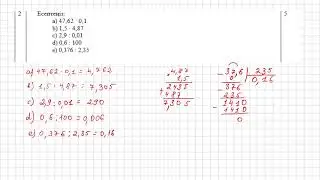 2 Есептеңіз: 5
a) 47,62 · 0,1
b) 1,5 · 4,87
c) 2,9 : 0,01
d) 0,6 : 100
e) 0,376 : 2,35
a) 47,62 · 0,1 = 4,762
b) 1,5 · 4,87 = 7,305
c) 2,9 : 0,01 = 290
d) 0,6 : 100 = 0,006
e) 0,376 : 2,35 = 0,16
4,87
1,5
2435
+ 487
7,305
- 37,6 | 235
0 | 0,16
- 376
235
- 1410
1410
0